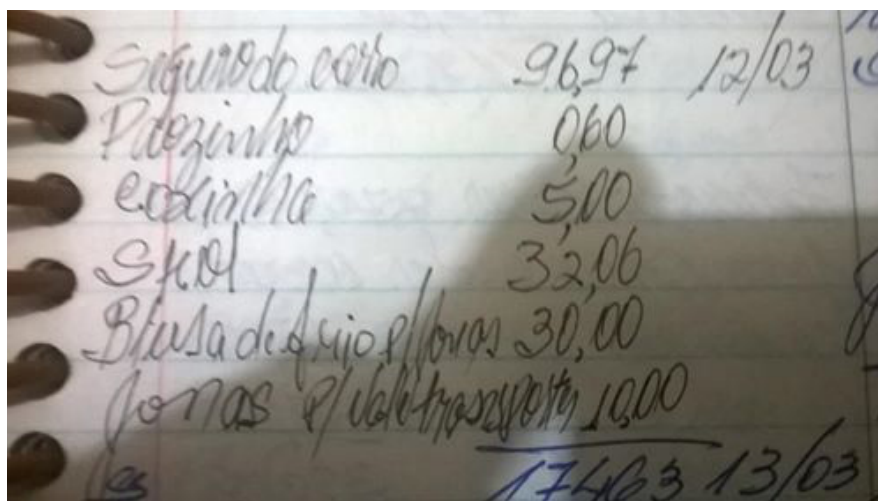 Seguro do carro 96,97 12/03
Pãozinho 0,60
Coxinha 5,00
32,06
Blusa de frio p/ Jonas 30,00
Jonas p/ vale transporte 10,00
174,63 13/03